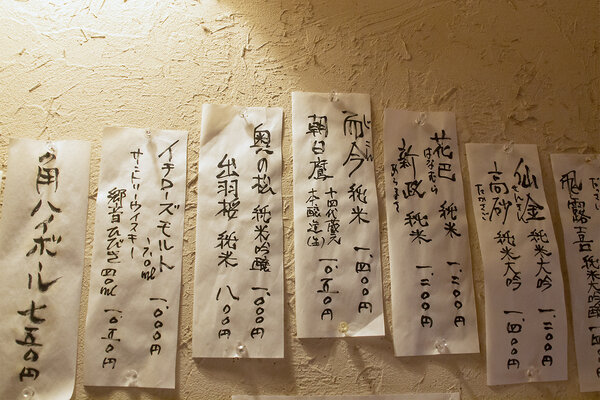 飛露喜 純米
仙禽 純米大吟 一、二〇〇円
せんきん
高砂 純米大吟 一、四〇〇円
たかさご
花巴 純米 一、二〇〇円
はなともえ
新政 純米 一、三〇〇円
あらまさ
而今 純米 一、四〇〇円
じこん
朝日鷹 十四代蔵元
本醸造(生) 一、〇五〇円
奥の松 純米吟醸 一、〇〇〇円
出羽桜 純米 八〇〇円
イチローズモルト 20ml 一、〇〇〇円
サントリーウイスキー
響 ひびき 40ml 一、〇五〇円
角ハイボール 七五〇円